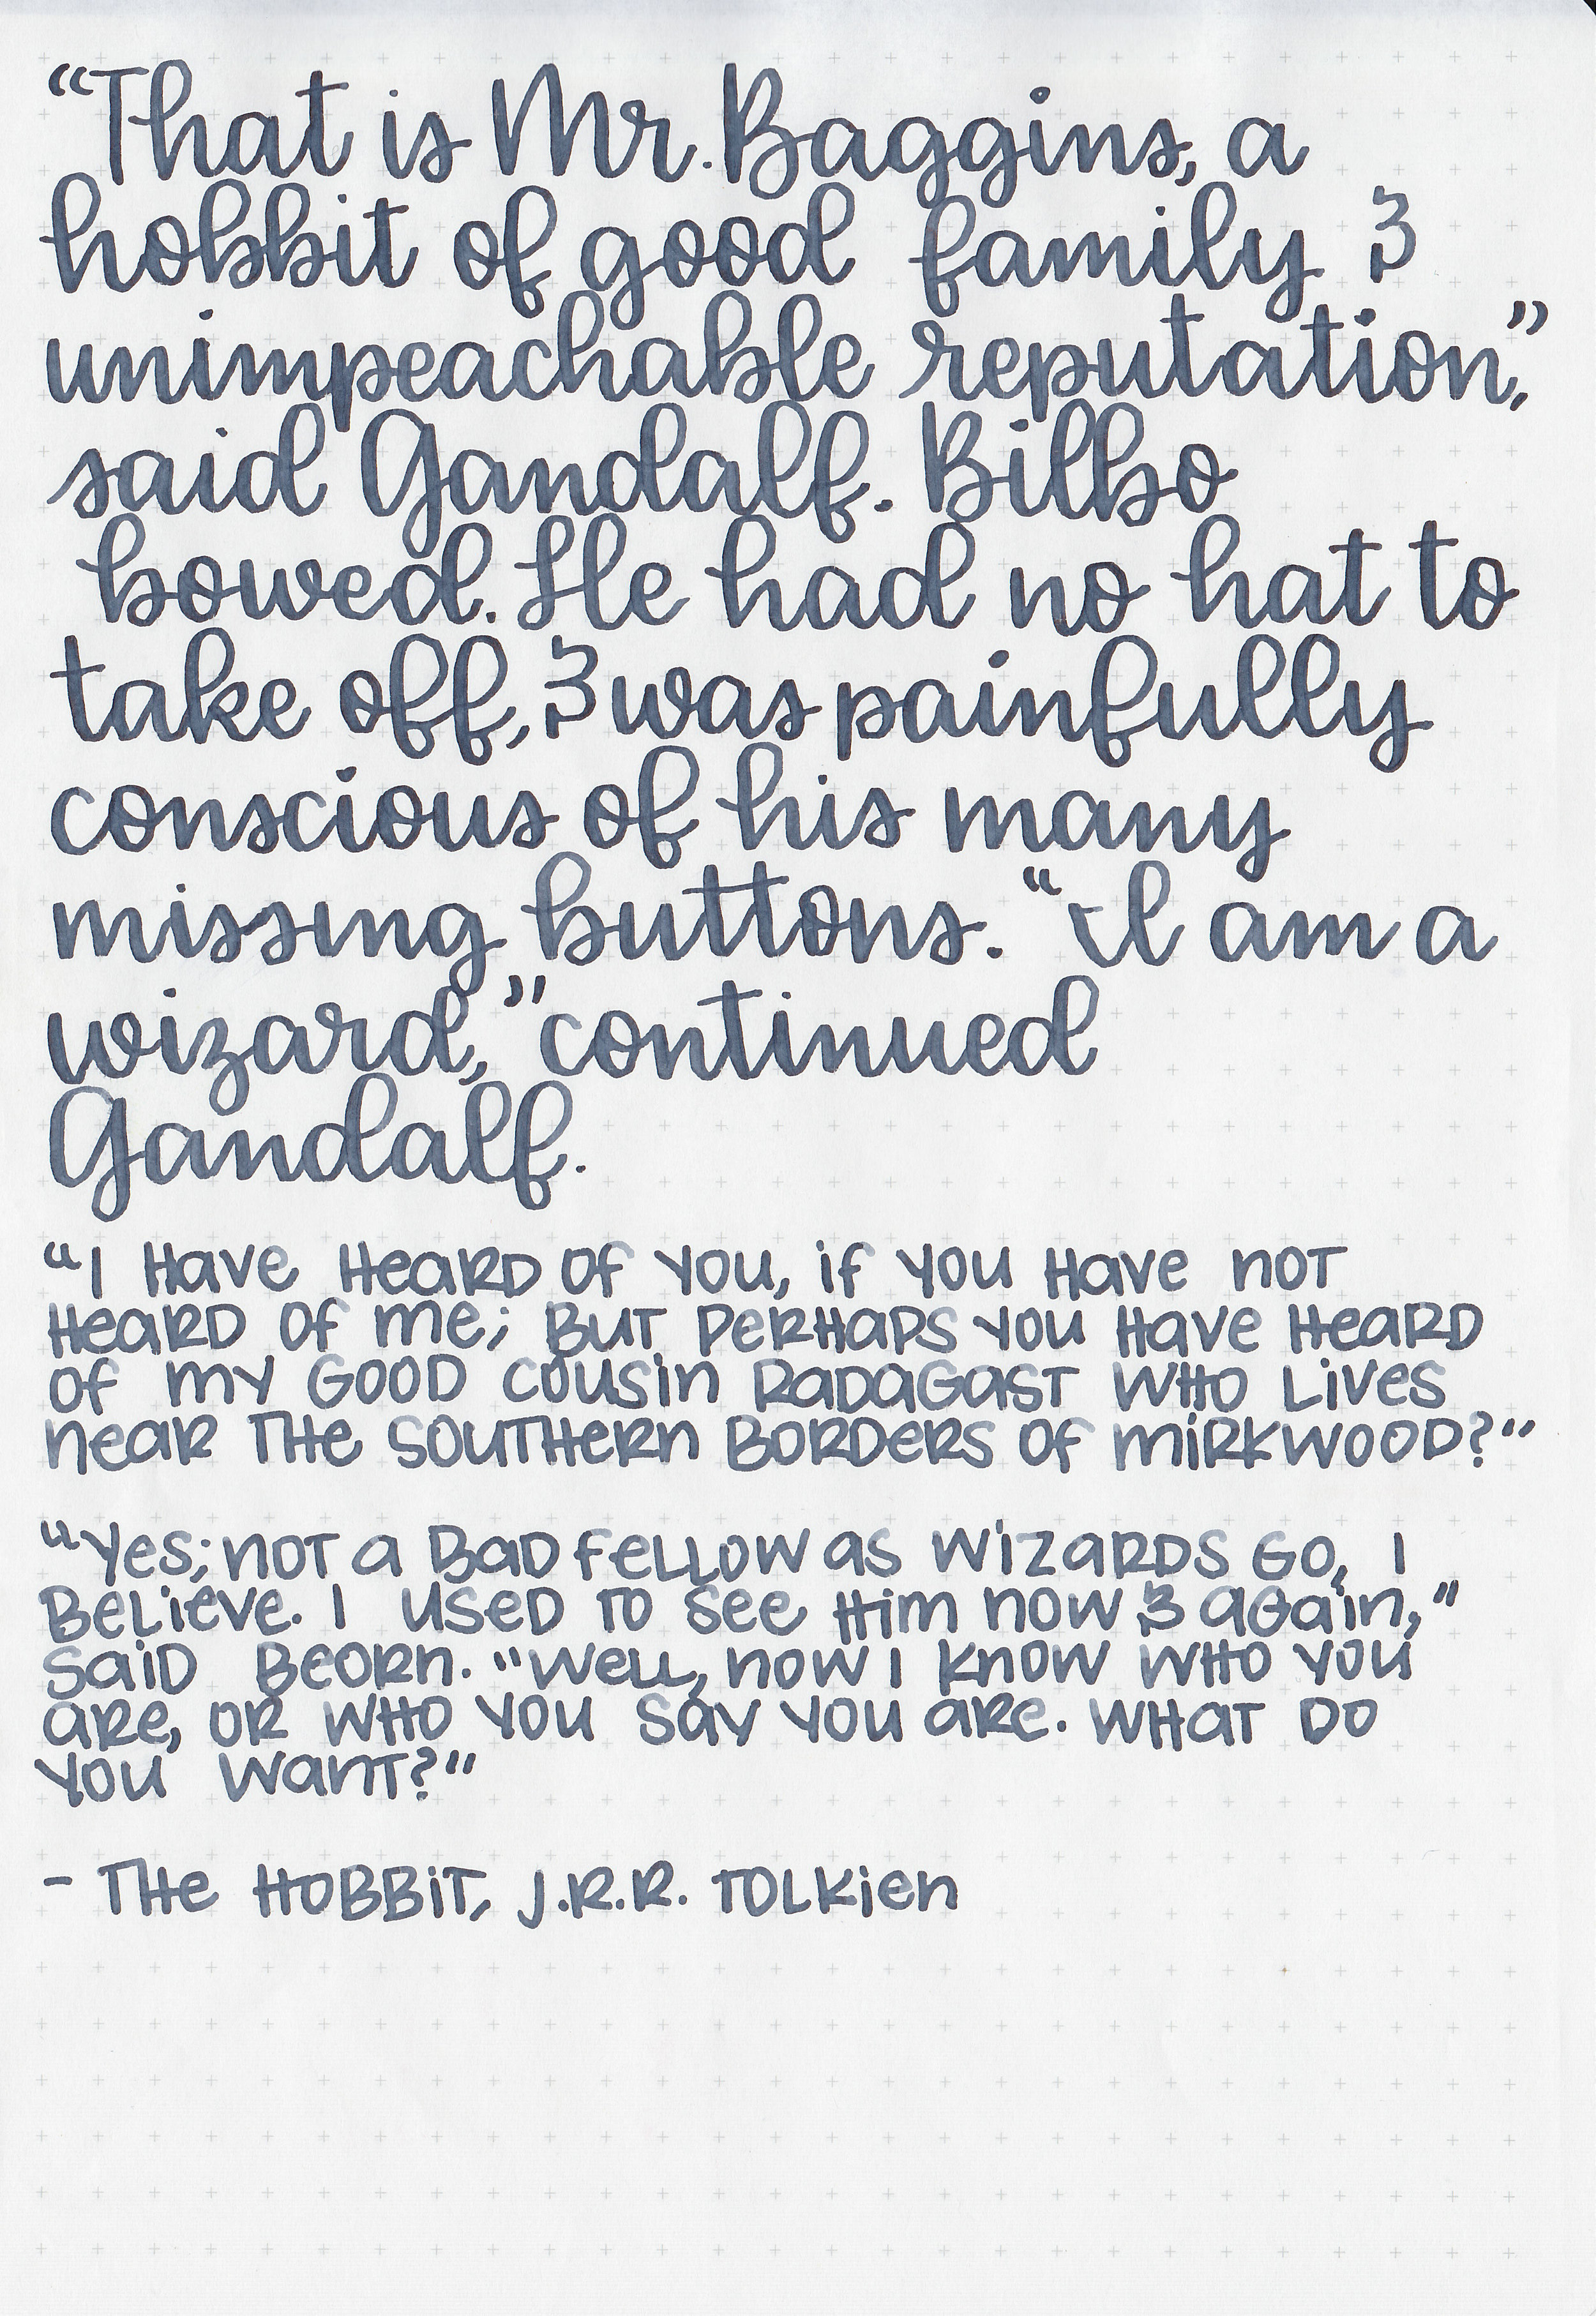 “That is Mr. Baggins, a
hobbit of good family &
unimpeachable reputation,”
said Gandalf. Bilbo
bowed. He had no hat to
take off, & was painfully
conscious of his many
missing buttons. “I am a
wizard,” continued
Gandalf.
“I have heard of you, if you have not
heard of me; but perhaps you have heard
of my good cousin Radagast who lives
near the Southern Borders of Mirkwood?”
“Yes; not a bad fellow as wizards go, I
believe. I used to see him now & again,”
said Beorn. “Well, now I know who you
are, or who you say you are. What do
you want?”
- The Hobbit, J.R.R. Tolkien